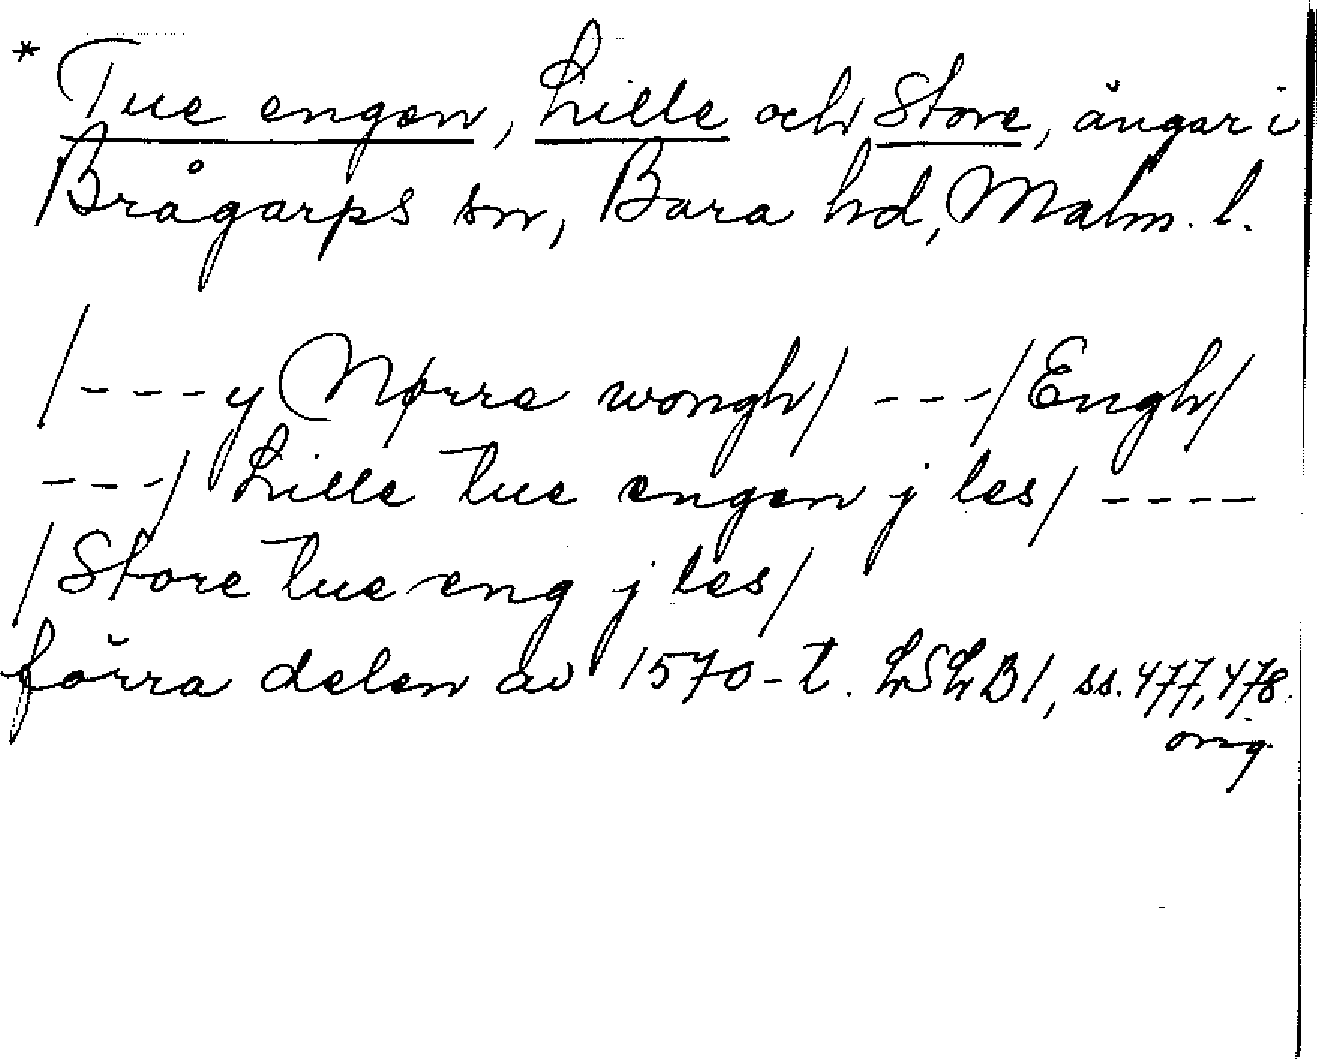 * Tue engen, Lille och Store, ängar i
Brågarps sn, Bara hd, Malm. l.
/---y Nørre wongh/ ---/Engh/
---/ Lille tue engen j les/ ----
/Store tue eng j les/
förra delen av 1570-t. LSLB1, ss. 477, 478.
orig.